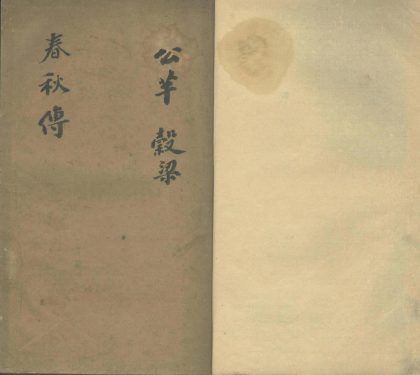 公羊 穀梁
春秋傳